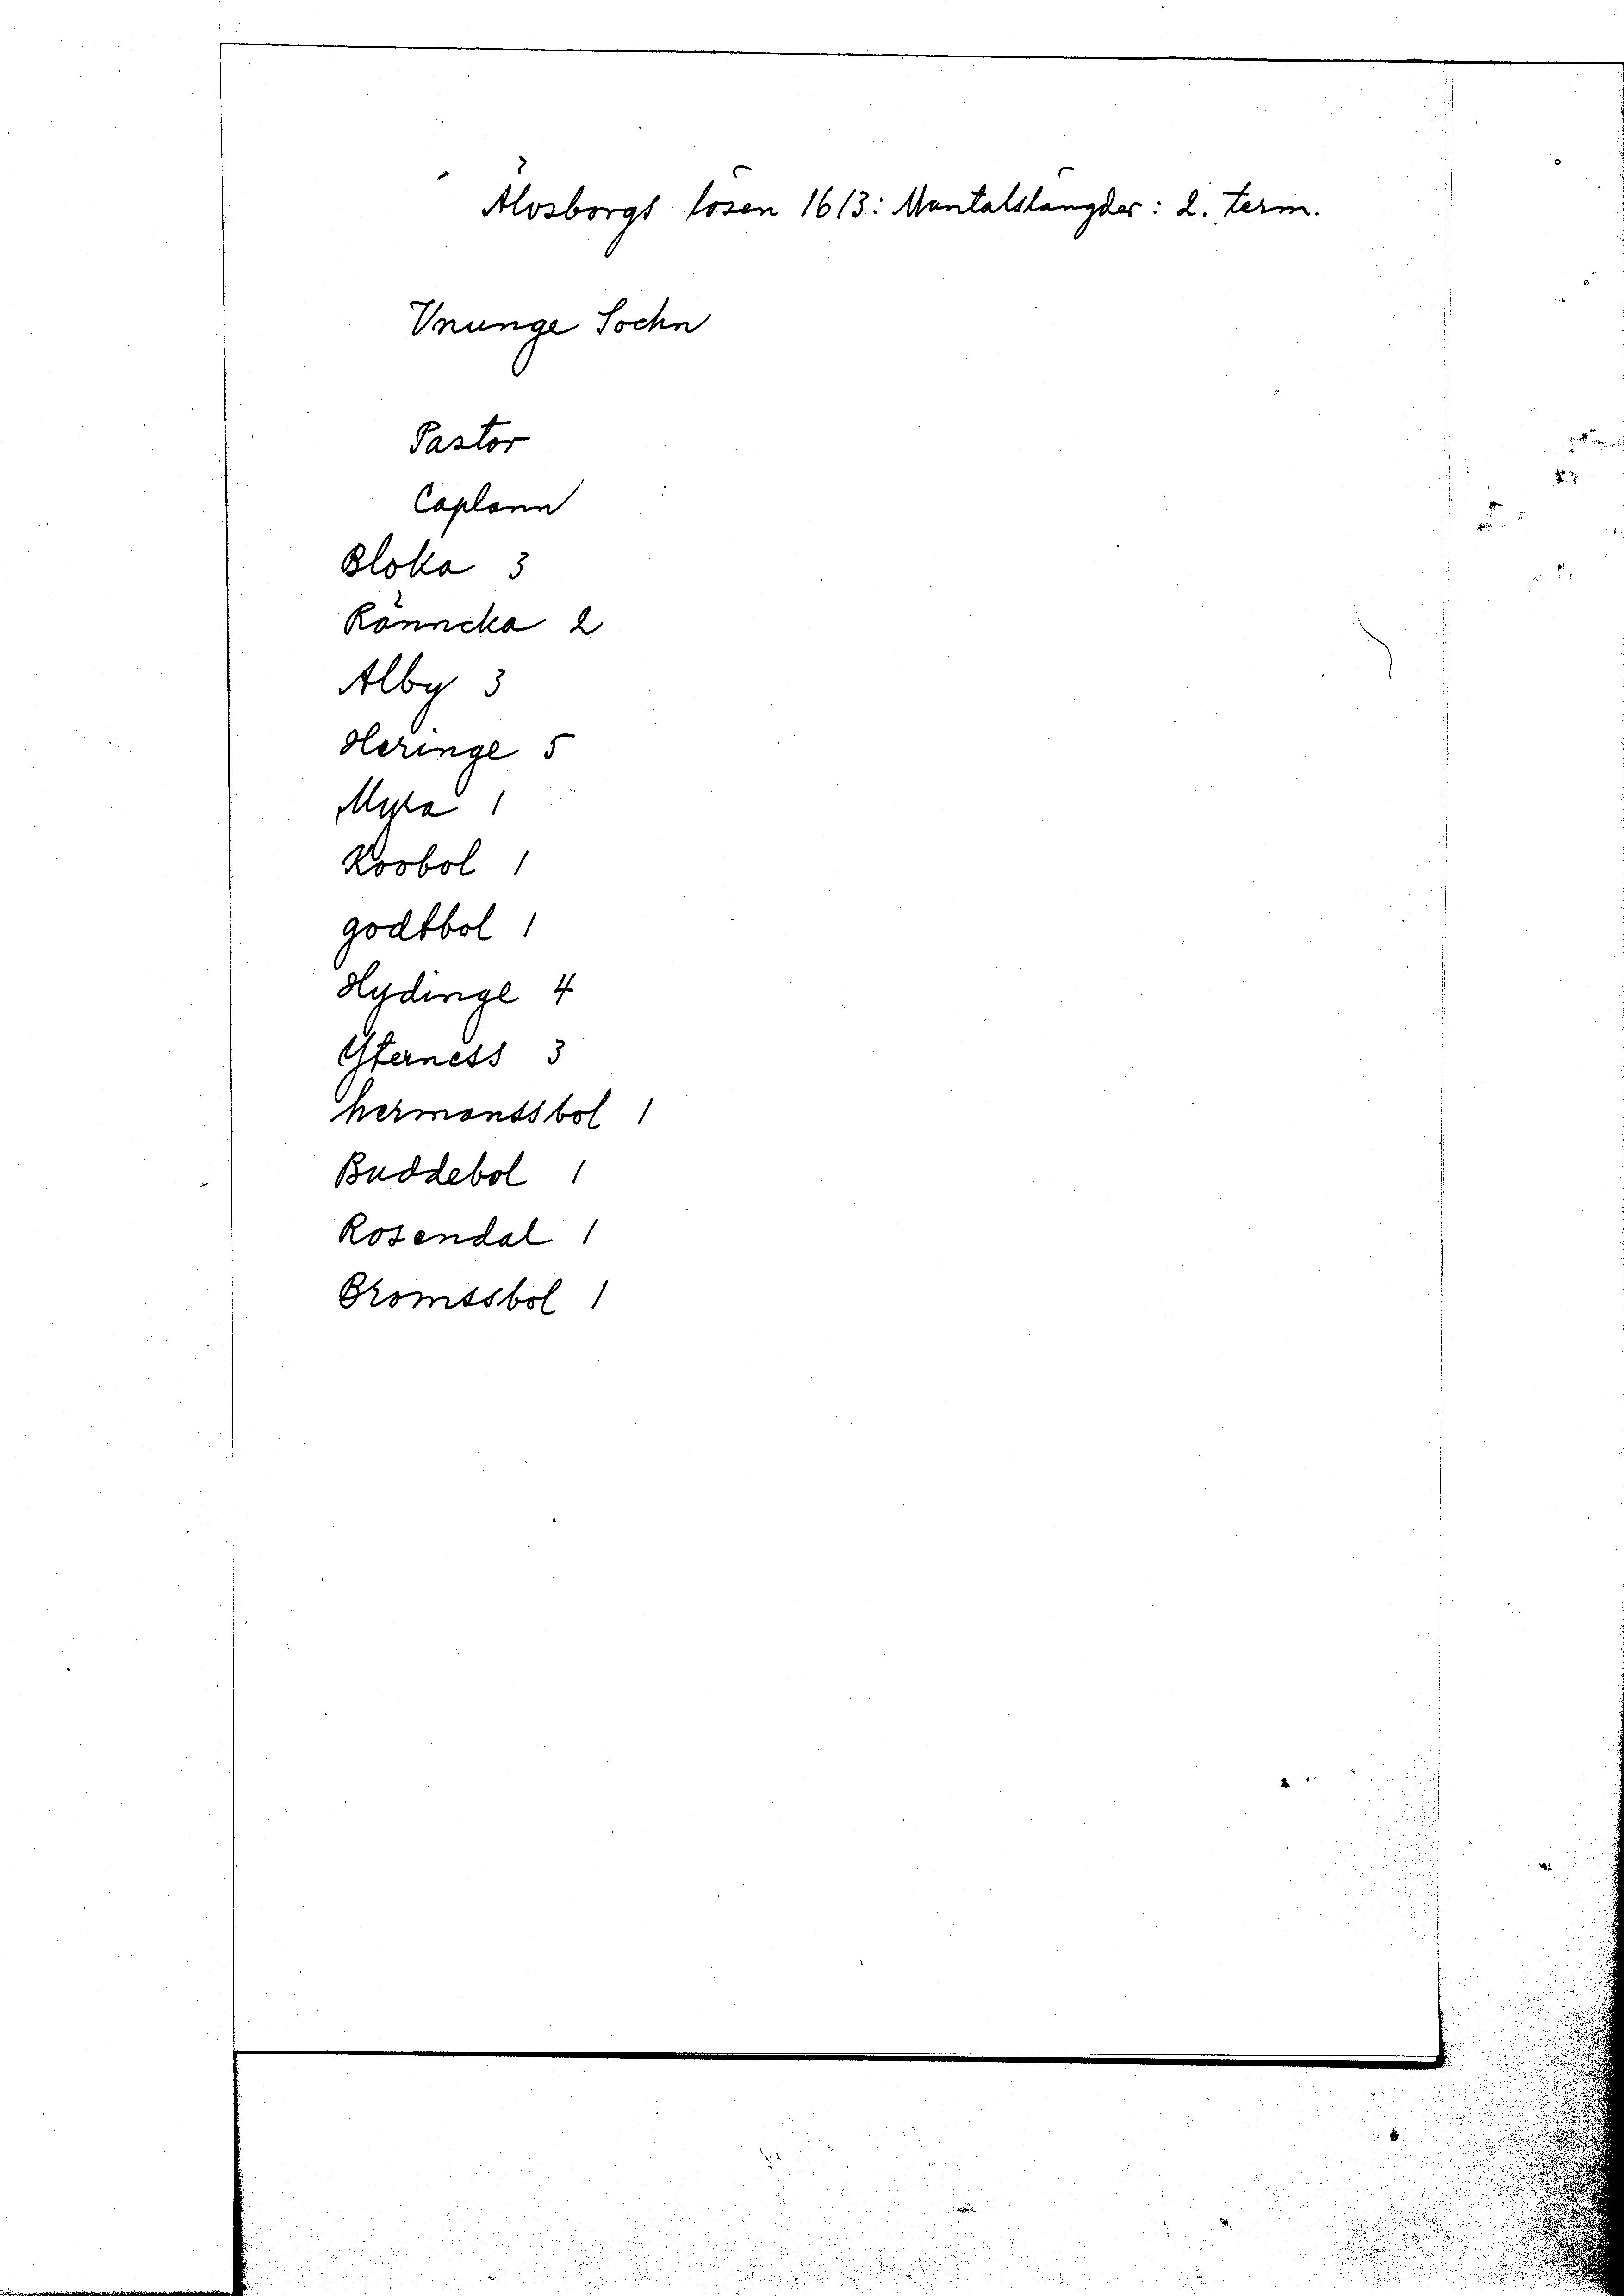 Älvsborgs lösen 1613: Mantalslängder: 2. term.
Vnunge Sochn
Pastor
Caplann
Bloka 3
Rånncka 2
Alby 3
Heringe 5
Myra 1
Koobol 1
godtbol 1
Hydinge 4
Yterness 3
hermantsbol 1
Buddebol 1
Rosendal 1
Bromssbol 1